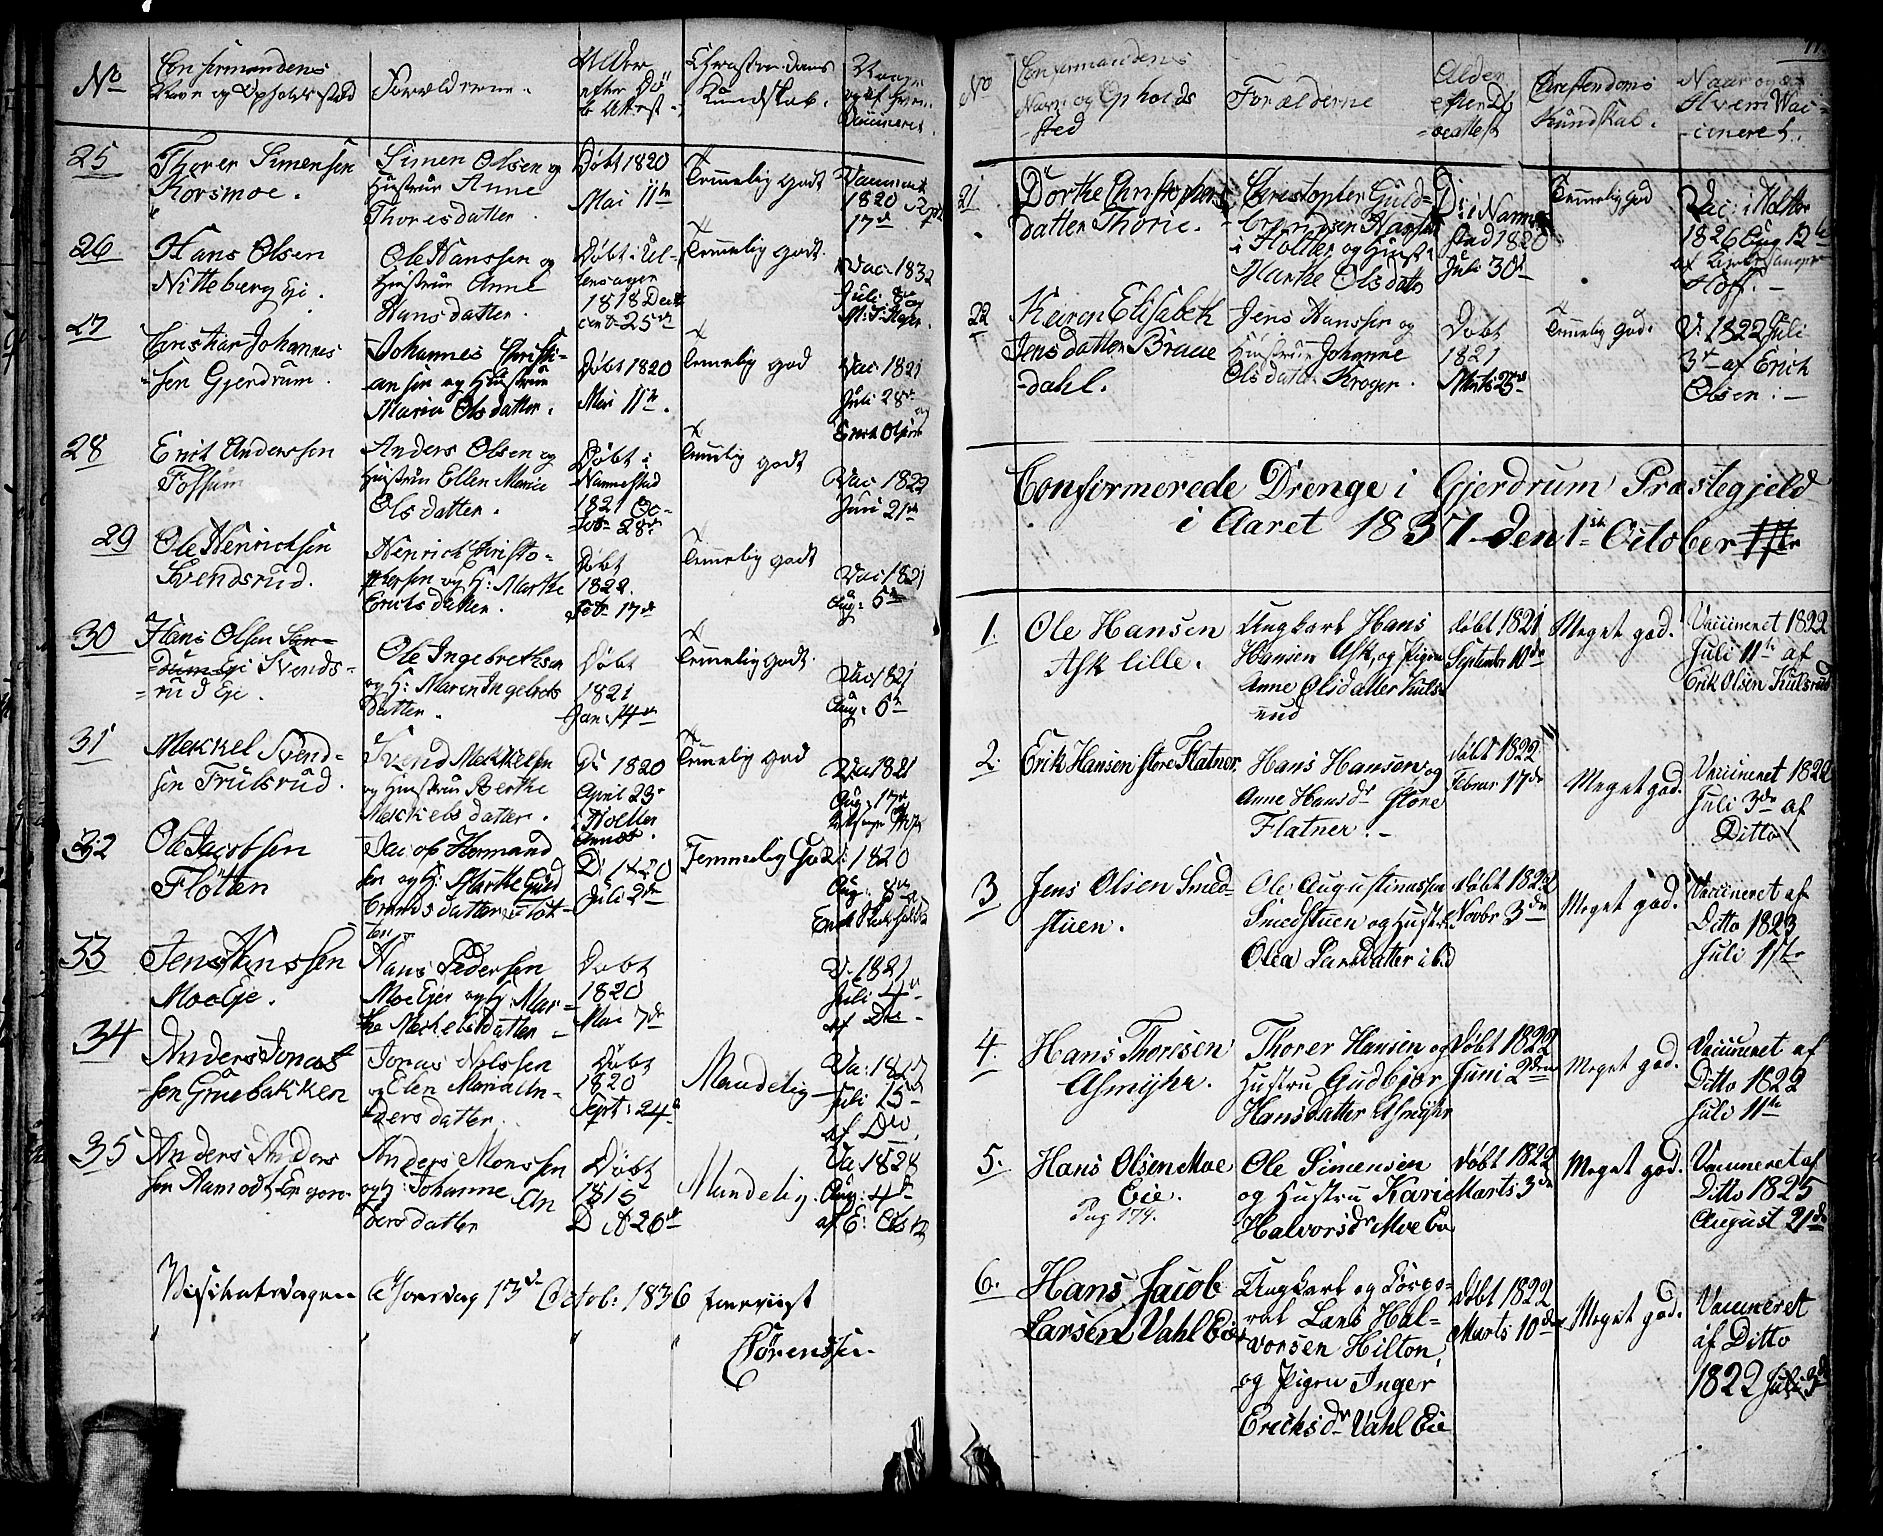 No
Confirmandens
Navn og Opholdssted
Forældrene.
Alder
efter Dø-
be Attest
Christendoms
Kundskab.
Naar
og af hvem
Vaccineret.
25
Thorer Simensen
Korsmoe.
Simen Olsen og
Hustrue Anne
Thoresdatter.
Døbt 1820
Mai 11te
Temmelig godt
1820
17de
26
Hans Olsen
Nitteberg Eje.
Ole Hanssen og
Hustrue Anne
Hansdatter.
Døbt i Ul-
lensager
1818 Dec
25de
Temmelig godt.
Vac. 1832
Juli 8de
27
Christian Johannes
-sen Gjerdrum.
Johannes Christi-
ansen og Hustrue
Maria Olsdatter.
Døbt 1820
Mai 11te.
Temmelig god
Vac. 1821
Juli 28de
Erich Olsen
28
Erich Anderssen
Fossum
Anders Olsen og
Hustrue Ellen Marie
Olsdatter.
Døbt i
Nannestad
1821 Oc-
tob. 28de
Temmelig godt
Vac 1822
Juni 21de
29
Ole Henrichsen
Svendsrud.
Henrich Christo-
phersen og H: Marthe
Erichsdatter.
Døbt
1822.
Feb. 17de
Temmelig godt
Vac 1821
Aug: 6te
30
Hans Olsen
Svends-
rud Eje.
Ole Ingebrethsen
og H: Maren Ingebrets
datter.
Døbt
1821
Jan: 14de
Temmelig godt.
Vac 1821
Aug: 6te
31
Mekkel Svend-
sen Trulsrud.
Svend Mekkelsen
og Hustrue Berthe
Mekkelsdatter.
D: 1820
April 23de
i Holter
Annex.
Temmelig god
Vac 1821
Aug: 17de
32
Ole Jacobsen
Fløtten
Jacob Hermand
sen og H: Marthe Guld
brandsdatter Fløt-
ten
D: 1820
Juli 2de
Temmelig God
1820
Aug: 8de
33
Jens Hanssen
Moe Eje.
Hans Pedersen
Moe Ejer og H: Mar-
the Mekkelsdatter
Døbt
1820
Mai 7de
V. 1821
Juli 4de
af Do
34
Anders Jonas
-sen Gruebakken
Jonas Nilssen
og Elen Maria An-
dersdatter.
Døbt
1820
Sept: 24de
Maadelig
Juli 15de
af Do
35
Anders Anders
sen
Anders Monssen
og H: Johanne An
dersdatter
Døbt
26de
Maadelig.
Va. 1828
Aug: 4de
af E: Olsen
Visitatsdagen Torsdag 13de Octob: 1836 foreviist
Sørenssen.
No
Confirmandens
Navn og Opholds
-sted
Forælderne
Alder
efter Dø
beattest
Christendoms
Kundskab.
Naar og af
Hvem Vac-
-cineret.
21
Dorthe Christophers
datter Thorie.
Christopher Guld-
brandsen
i Holter og Hust:
Marthe Olsdatter
D: i Nanne-
stad 1820
Juli 30te
Temmelig God
Vac: i Holter
1826 Aug 12te
af
Hoff. -
22
Keiren Elisabeth
Jensdatter Braae
-dahl.
Jens Hanssen og
Hustrue Johanne
Olsdatter Kroger.
Døbt
1821
Marts 25de
Temmelig god.
V: 1822 Juli
3de af Erich
Olsen. -
Confirmerede Drenge i Gjerdrum Præstegjeld
i Aaret 1837 den 1ste October
1.
Ole Hansen
Ask lille.
Ungkarl Hans
Hansen Ask, og Pigen
Anne Olsdatter Kuls-
rud
døbt 1821
September 10de
Meget god.
Vaccineret 1822
Juli 11te af
Erik Olsen Kulsrud
2.
Erik Hansen store Flatner.
Hans Hansen og
Anne Hansdr store
Flatner. -
døbt 1822
Februar 17de
Meget god.
Vaccineret 1822
Juli 3de af
Ditto
3
Jens Olsen Smed-
stuen.
Ole Augustinussen
Smedstuen og Hustr.
Olea Larsdatter ibd
døbt 1822
Novbr 3de
Meget god.
Vaccineret af
Ditto 1823
Juli 17de
4.
Hans Thoresen
Asmyhr.
Thorer Hansen og
Hustru Gudbjør
Hansdatter Asmyhr
døbt 1822
Juni 2den
Meget god.
Vaccineret af
Ditto 1822
Juli 11te
5.
Hans Olsen Moe
Eie.
Pag 174.
Ole Simensen
og Hustru Karie
Halvorsdr Moe Eie
døbt 1822
Marts 3de
Meget god.
Vaccineret af
Ditto 1825
August 21de
6.
Hans Jacob
Larsen Vahl Eie
Ungkarl og Corpo-
ral Lars Hal-
vorsen Hilton,
og Pigen Inger
Erichsdr Vahl Eie
døbt 1822
Marts 10de
Meget god.
Vaccineret
af Ditto
1822 Juli 3de